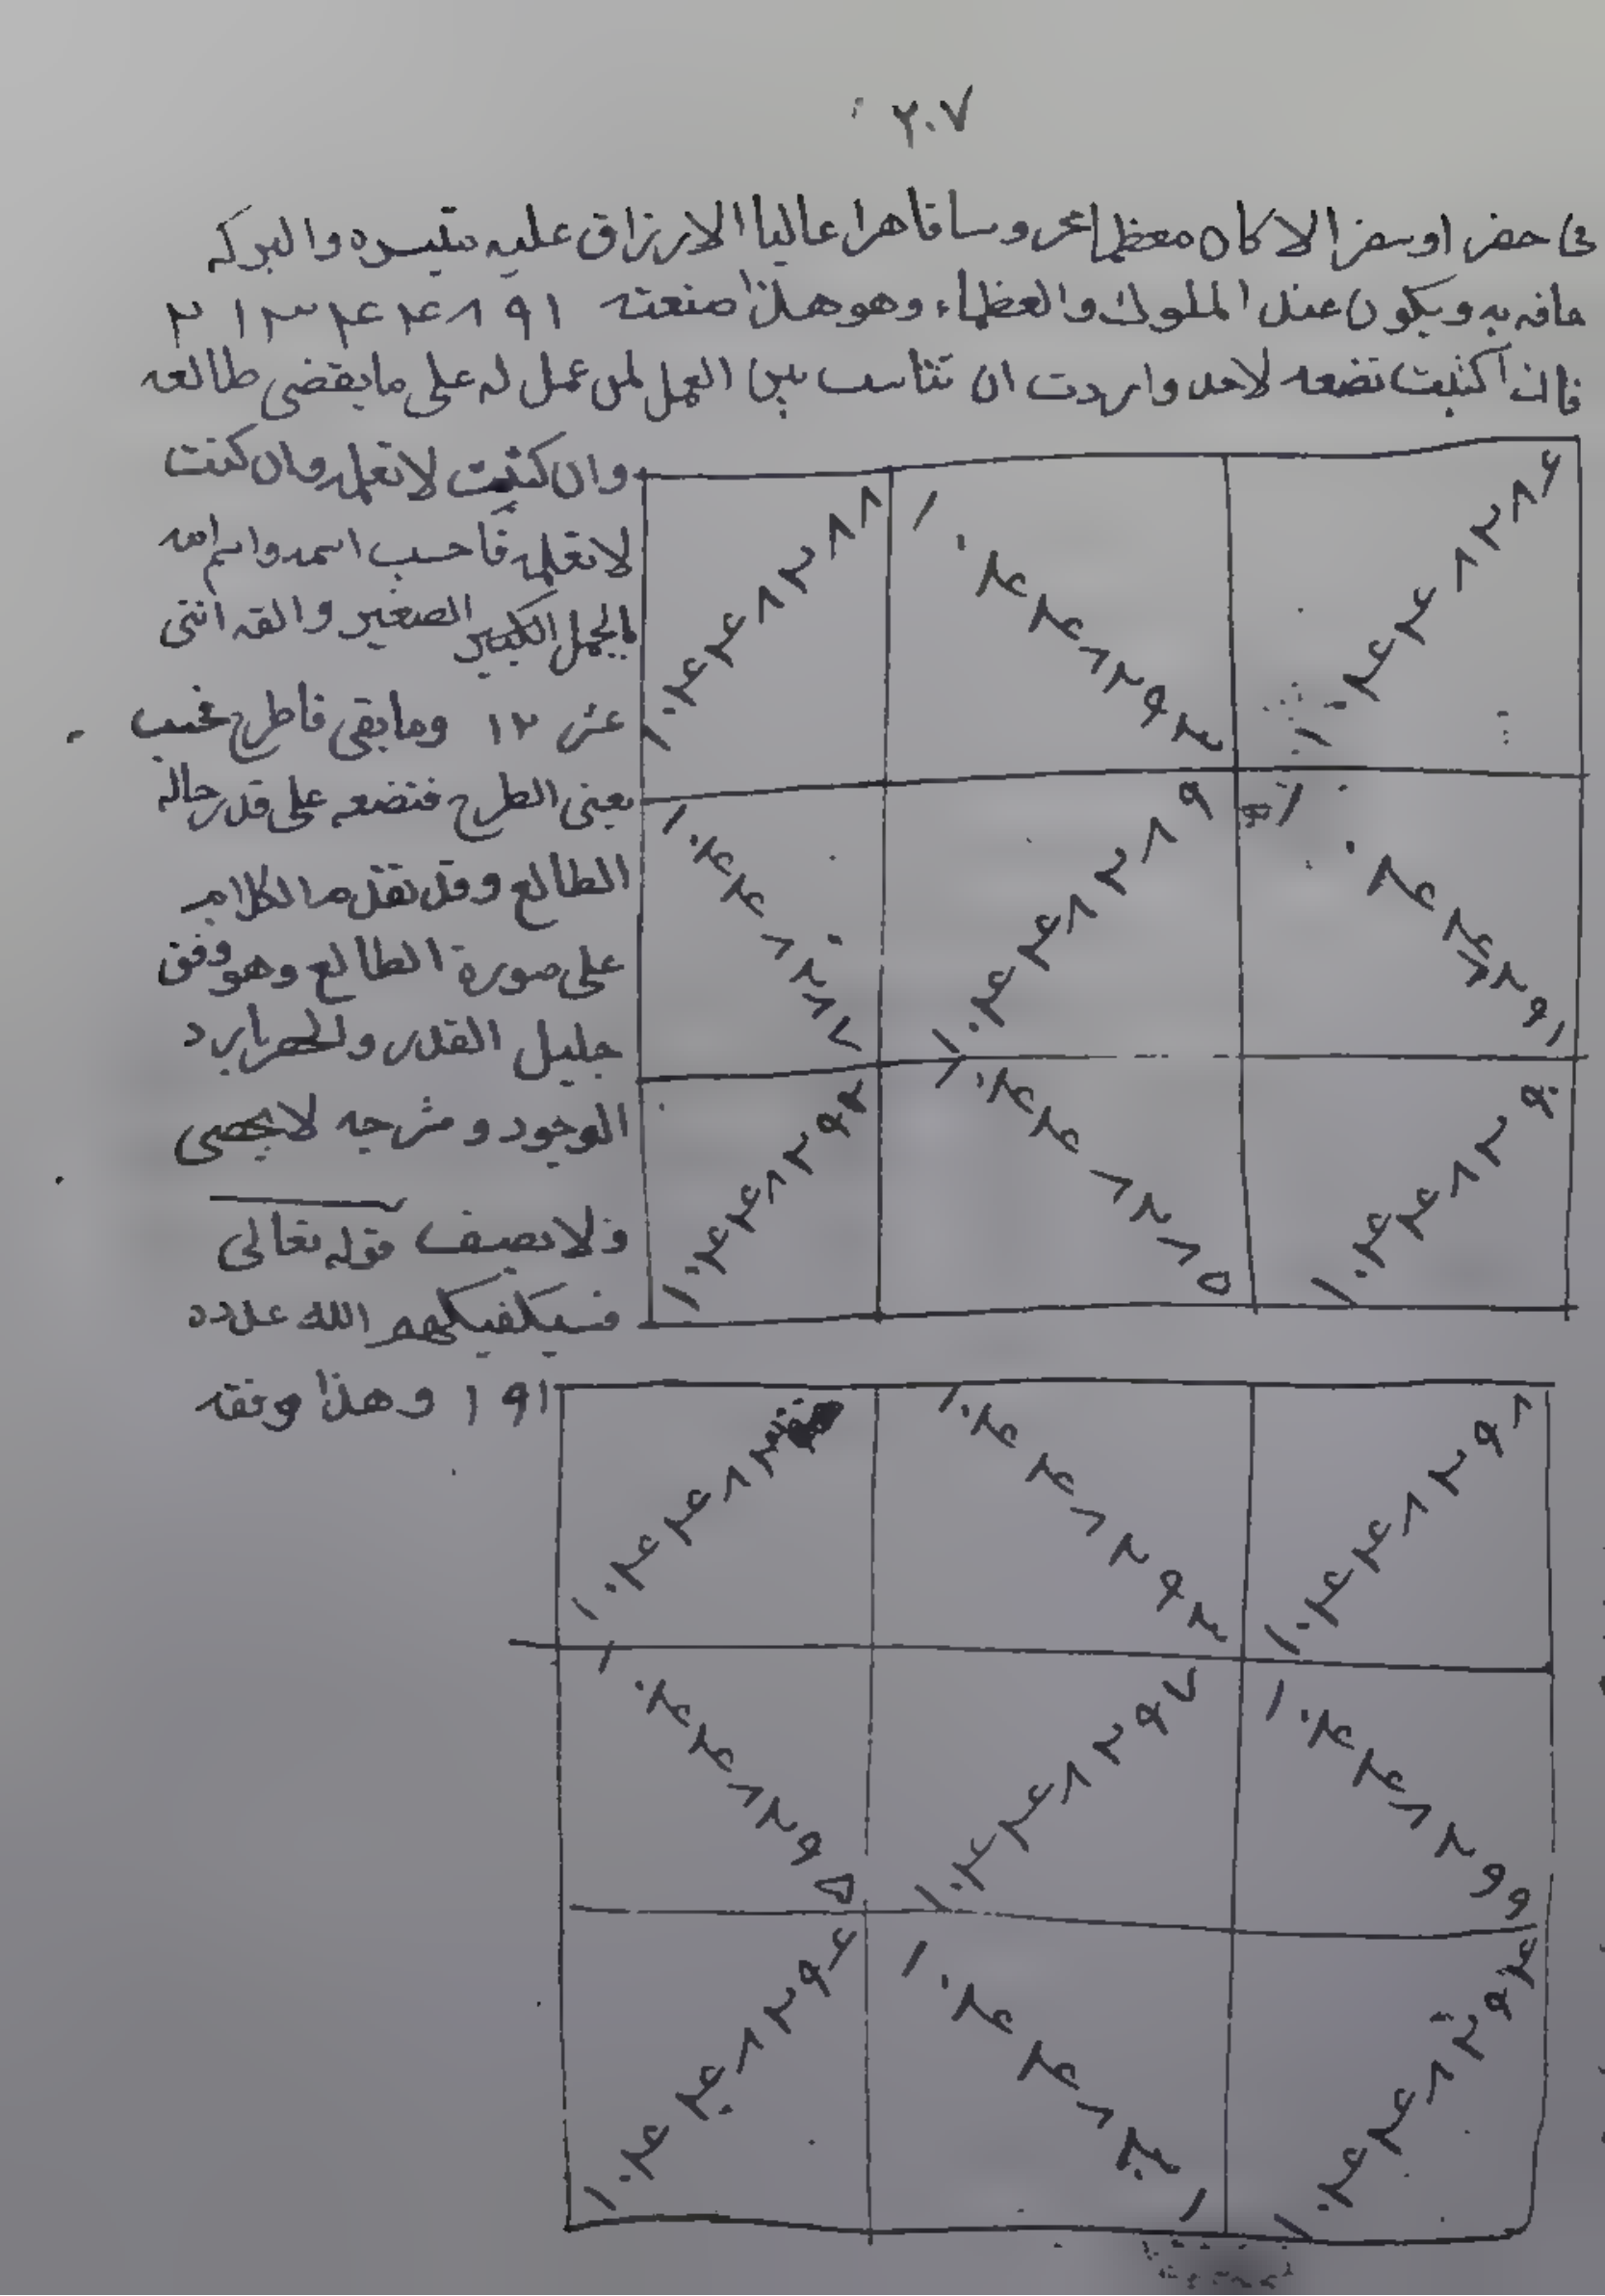 ٢٠٧
فى حضر او سفر الا كان معظما محروسا قاهرا عاليا الارزاق عليه متيسره والبركه
حافه به ويكون عند الملوك والعظماء وهو هذا صنعته ١ ٩ ٨ ٤ ٤ ٣ ١ ٢
فان اكنيت تضعه لاحد واردت ان تناسب بين العمل لمن عمل له على ما يقضى طالعه
وان كنت لا تعلم وان كنت
لا تعلمه فاحسب اسمه واسم امه
بالجمل الكبير الصغير والقه اثنى
عشر ١٢ وما يبقى فاطرح
يعنى الطرح فتضعه على قدر حاله
الطالع وقد تقدم الكلام
على صورة الطالع وهو وفق
جليل القدر
الوجود و لا يحصى
ولا يصيف قوله تعالى
فسيكفيكهم الله عدده
١٩١ وهذا وفقه
١٠٤٤٨٢٨٦
١٠٤٤٨٢٩٣
١٠٤٤٨٢٨٨
١٠٤٤٨٢٩١
١٠٤٤٨٢٨٩
١٠٤٤٨٢٨٧
١٠٤٤٨٢٩٠
١٠٤٤٨٢٨٥
١٠٤٤٨٢٩٢
١٠٤٤٨٢٩٨
١٠٤٤٨٢٩٣
١٠٤٤٨
١٠٤٤٨٢٩٩
١٠٤٤٨٢٩٧
١٠٤٤٨٢٩٥
١٠٤٤٨٢٩٤
١٠٤٤٨٣٠١
١٠٤٤٨٢٩٦